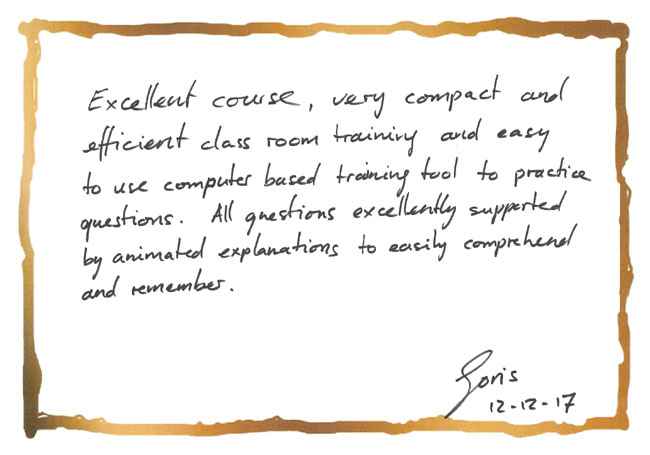 Excellent course, very compact and
efficient class room training and easy
to use computer based training tool to practice
questions. All questions excellently supported
by animated explanations to easily comprehend
and remember.
Joris
12-12-17